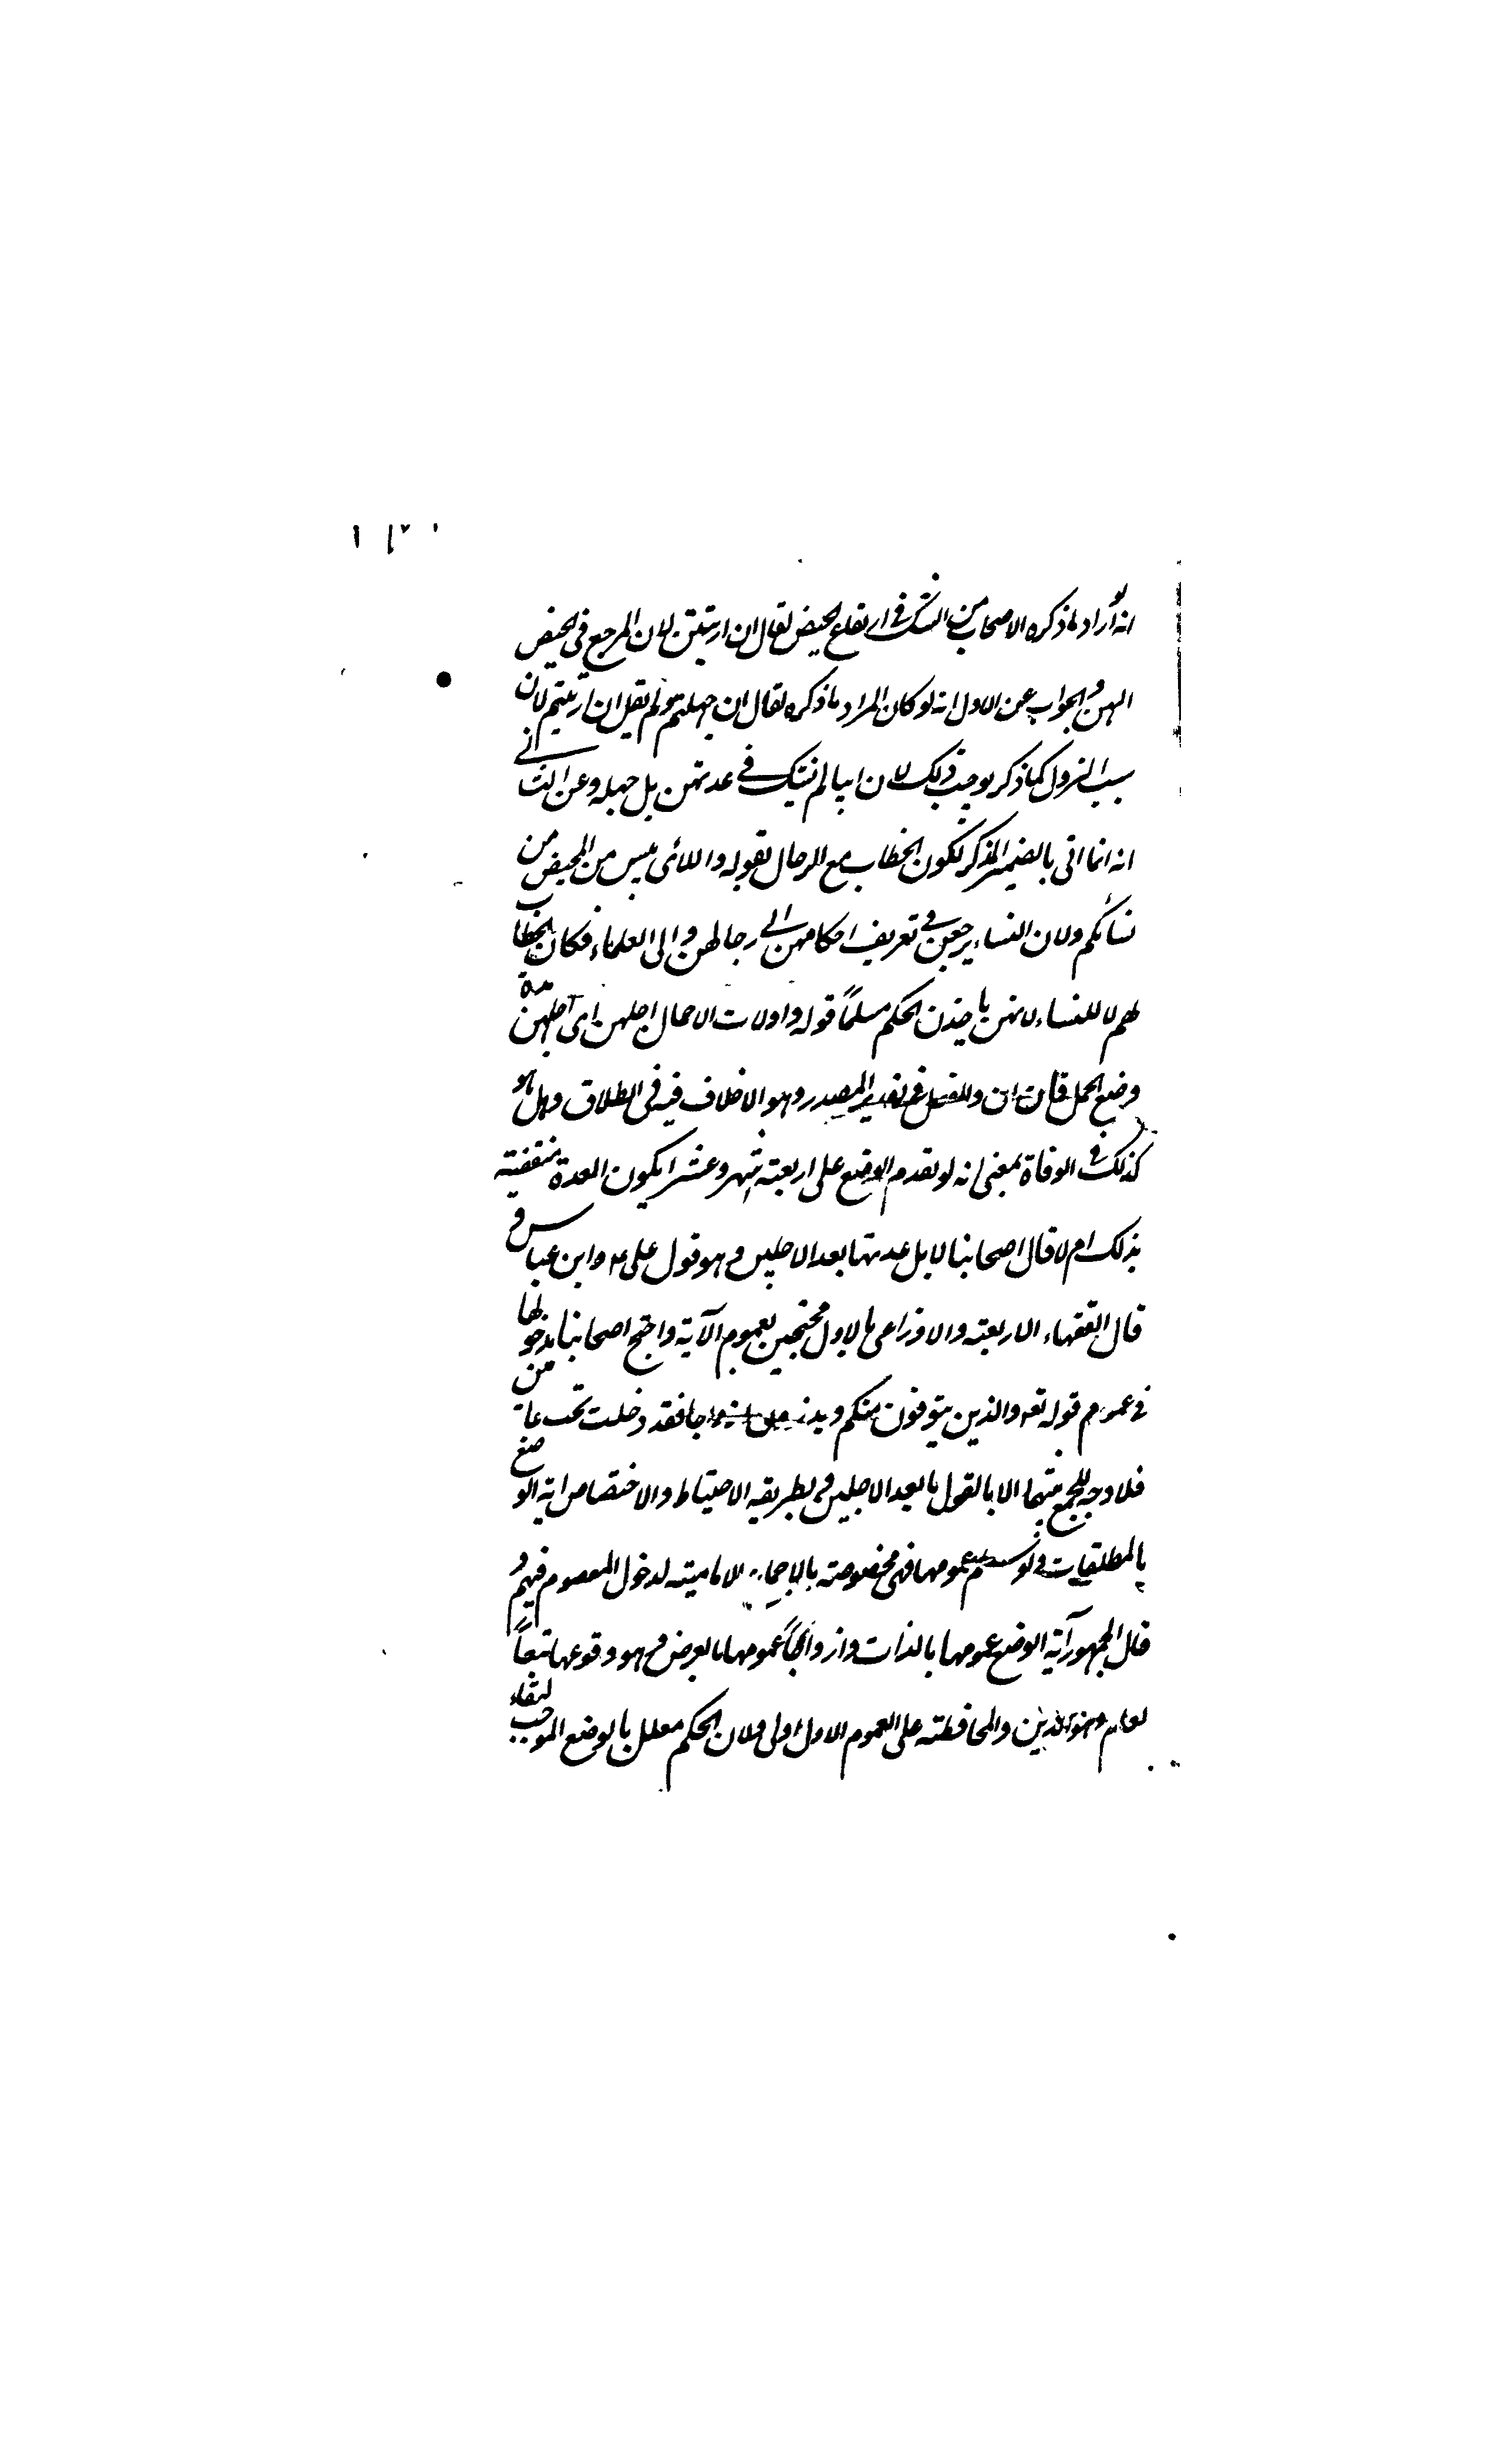 انه لو أراد ما ذكره الاصحاب من الشك فى ارتفاع الحيض لقال ان ارتبتن لان المرجع فى الحيض
اليهن و الجواب عن الاول انه لو كان المراد ما ذكره لقال ان جهلتم و لم يقل ان ارتبتم لان
سبب النزول كما ذكر يوجب ذلك لان ابيا لم يشك فى عدتهن بل جهله و عن الثانى
انه انما اتى بالضمير المذكر لكون الخطاب مع الرجال لقوله و اللائى يئسن من المحيض من
نسائكم و لان النساء يرجعن فى تعريف احكامهن الى رجالهن و الى العلماء فكان الخطاب
لهم لا للنساء لانهن ياخذن الحكم مسلماً قوله و اولات الاحمال اجلهن اى مدة اجلهن
وضع الحمل فان ان و الفعل فى تقدير المصدر و هو لا خلاف فيه فى الطلاق و هل هو
كذلك فى الوفاة بمعنى انه لو تقدم الوضع على اربعة اشهر و عشرا يكون العدة منقضية
بذلك ام لا قال اصحابنا لا بل عدتها بعد الاجلين و هو قول على ع و ابن عباس و
قال الفقهاء الاربعة و الاوزاعى بالاول محتجين بعموم الآية و احتج اصحابنا بدخولها
فى عموم قوله تعه و الذين يتوفون منكم و يذرون ازواجا فقد دخلت تحت عا من
فلا وجه للجمع بينهما الا بالقول بابعد الاجلين و لطريقه الاحتياط و الاختصاص اية الوضع
بالمطلقات و لو سلم عمومها فهى مخصوصة بالاجماع الامامية لدخول المعصوم فيهم و
قال الجمهور آية الوضع عمومها بالذات و ازواجاً عمومها بالعرض و هو وقوعها تبعاً
لعام و هو الذين و المحافظة على العموم الاول اولى و لان الحكم معلل بالوضع الموجب لنقاء